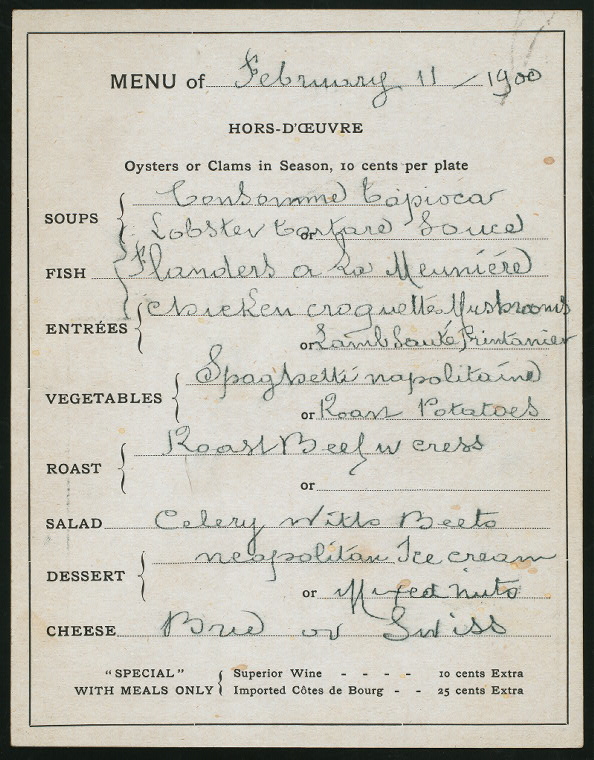 MENU of February 11 - 1900
HORS-D'ŒUVRE
Oysters or Clams in Season, 10 cents per plate
SOUPS Consomme Tapioca
Lobster Tartare Sauce or
FISH Flanders a La Meuniére
ENTRÉES Chicken croquette Mushrooms
or Lamb Sauté Printanier
VEGETABLES Spaghetti napolitaine
or Roast Potatoes
ROAST Roast Beef w cress
or
SALAD Celery with Beets
DESSERT neapolitan Ice cream
or Mixed nuts
CHEESE Brie or Swiss
"SPECIAL" Superior Wine - - - - 10 cents Extra
WITH MEALS ONLY Imported Côtes de Bourg - - 25 cents Extra